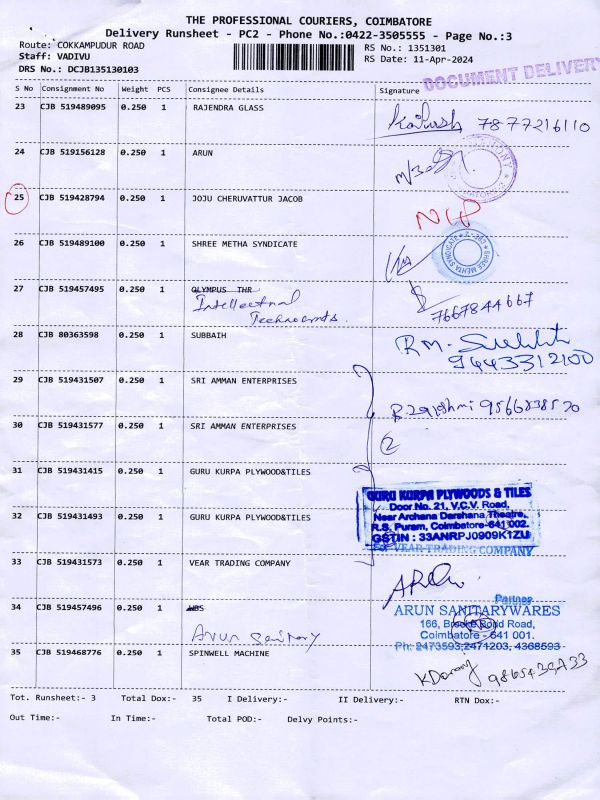 THE PROFESSIONAL COURIERS, COIMBATORE
Delivery Runsheet - PC2 - Phone No.:0422-3505555 - Page No.:3
Route: COKKAMPUDUR ROAD
RS No.: 1351301
Staff: VADIVU
RS Date: 11-Apr-2024
DRS No.: DCJB135130103
DOCUMENT DELIVERY
S No Consignment No Weight PCS Consignee Details Signature
23 CJB 519489095 0.250 1 RAJENDRA GLASS
7877216110
24 CJB 519156128 0.250 1 ARUN
25 CJB 519428794 0.250 1 JOJU CHERUVATTUR JACOB
26 CJB 519489100 0.250 1 SHREE METHA SYNDICATE
SHREE MEHTA SYNDICATE
27 CJB 519457495 0.250 1 OLYMPUS THR
Intellectual
7667844667
28 CJB 80363598 0.250 1 SUBBAIH
R.M.
9443312100
29 CJB 519431507 0.250 1 SRI AMMAN ENTERPRISES
9566838570
30 CJB 519431577 0.250 1 SRI AMMAN ENTERPRISES
2
31 CJB 519431415 0.250 1 GURU KURPA PLYWOOD&TILES
GURU KURPA PLYWOODS & TILES
Door No. 21, V.C.V. Road,
Near Archana Darshana Theatre,
R.S. Puram, Coimbatore-641 002.
GSTIN : 33ANRPJ0909K1ZU
32 CJB 519431493 0.250 1 GURU KURPA PLYWOOD&TILES
VEAR TRADING COMPANY
33 CJB 519431573 0.250 1 VEAR TRADING COMPANY
Partner
34 CJB 519457496 0.250 1 WBS
Arun Sanitary
ARUN SANITARYWARES
166, Brooke Bond Road,
Coimbatore - 641 001.
Ph: 2473593,2471203, 4368593
35 CJB 519468776 0.250 1 SPINWELL MACHINE
Tot. Runsheet:- 3 Total Dox:- 35 I Delivery:- II Delivery:- RTN Dox:-
Out Time:- In Time:- Total POD:- Delvy Points:-